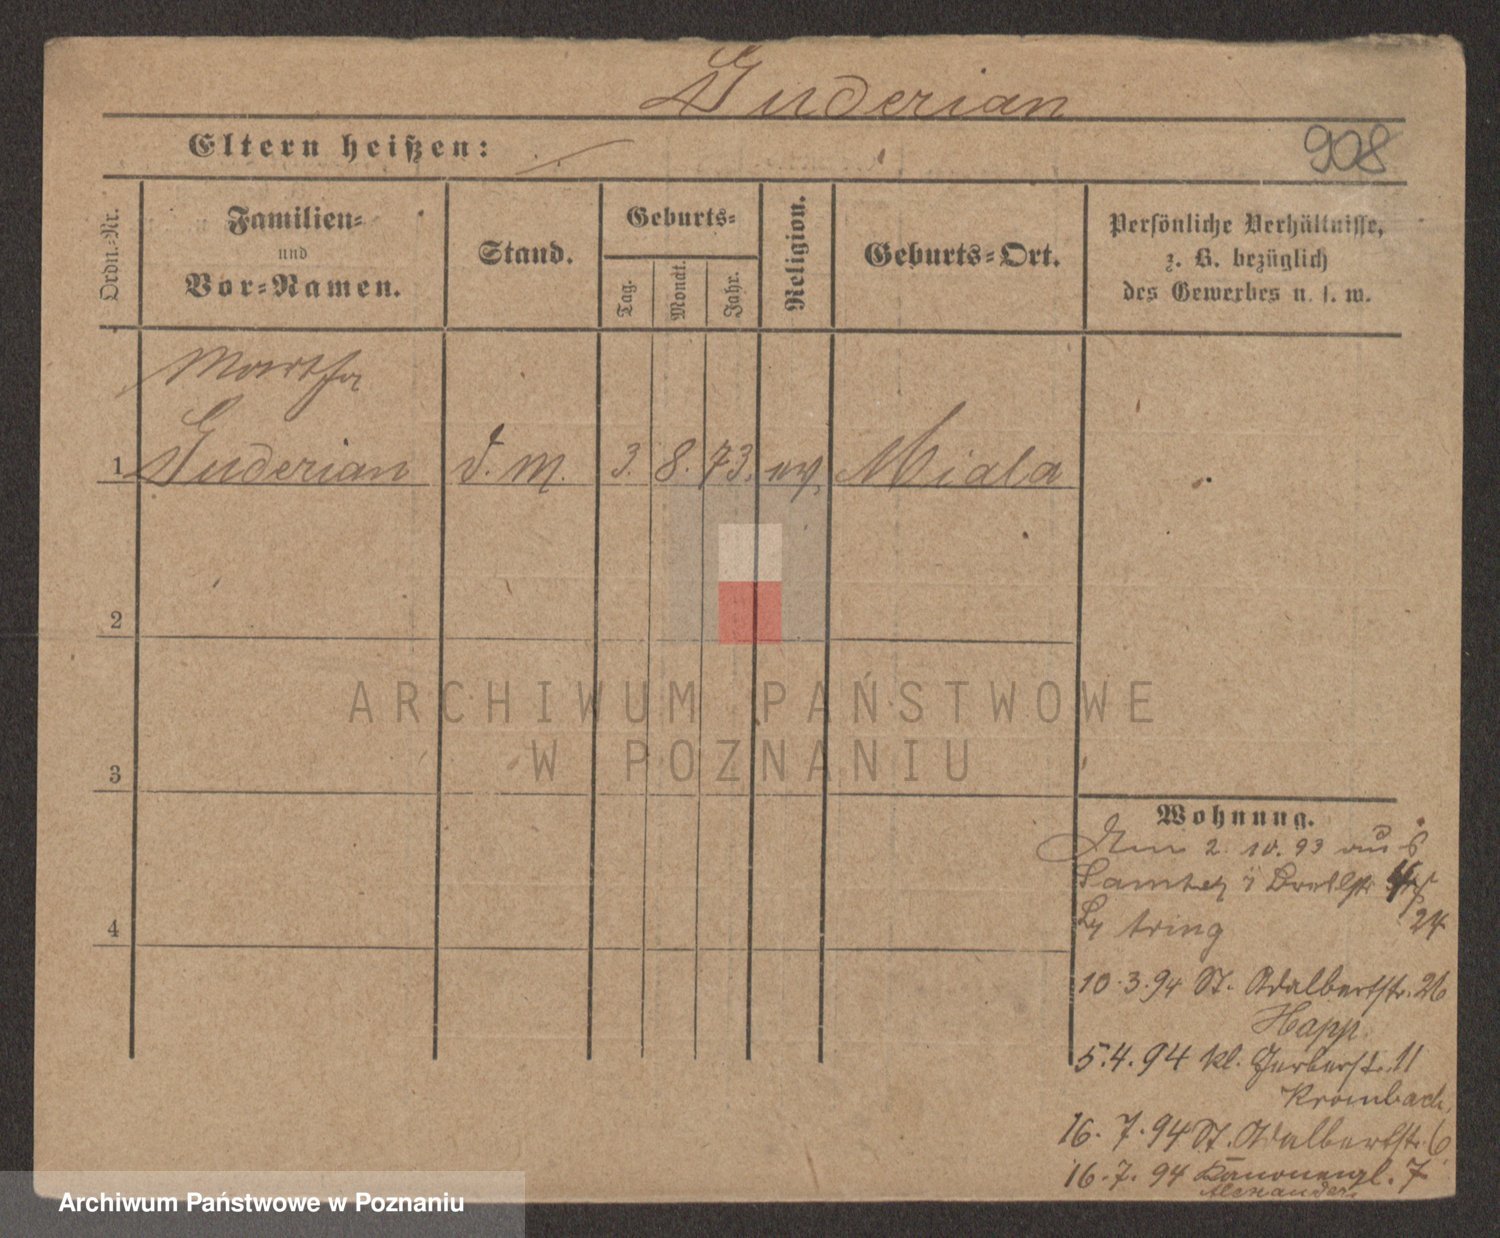 Guderian
Eltern heißen:
908
Ordn.-Nr.
Familien-
und
Vor-Namen.
Stand.
Geburts-
Tag.
Monat.
Jahr.
Religion.
Geburts-Ort.
Persönliche Verhältnisse,
z. B. bezüglich
des Gewerbes u. s. w.
Martha
1 Guderian d. M. 3. 8. 73. ev. Miala
2
3
4
ARCHIWUM PAŃSTWOWE
W POZNANIU
Wohnung.
2. 10. 93 aus
Samter
24
10.3.94 St. Adalbertstr. 26
Happ
5.4.94 kl. Gerberstr. 11
Krombach
16.7.94 St. Adalbertstr. 6
16.7.94 Kanonenpl. 7
Alexander
Archiwum Państwowe w Poznaniu